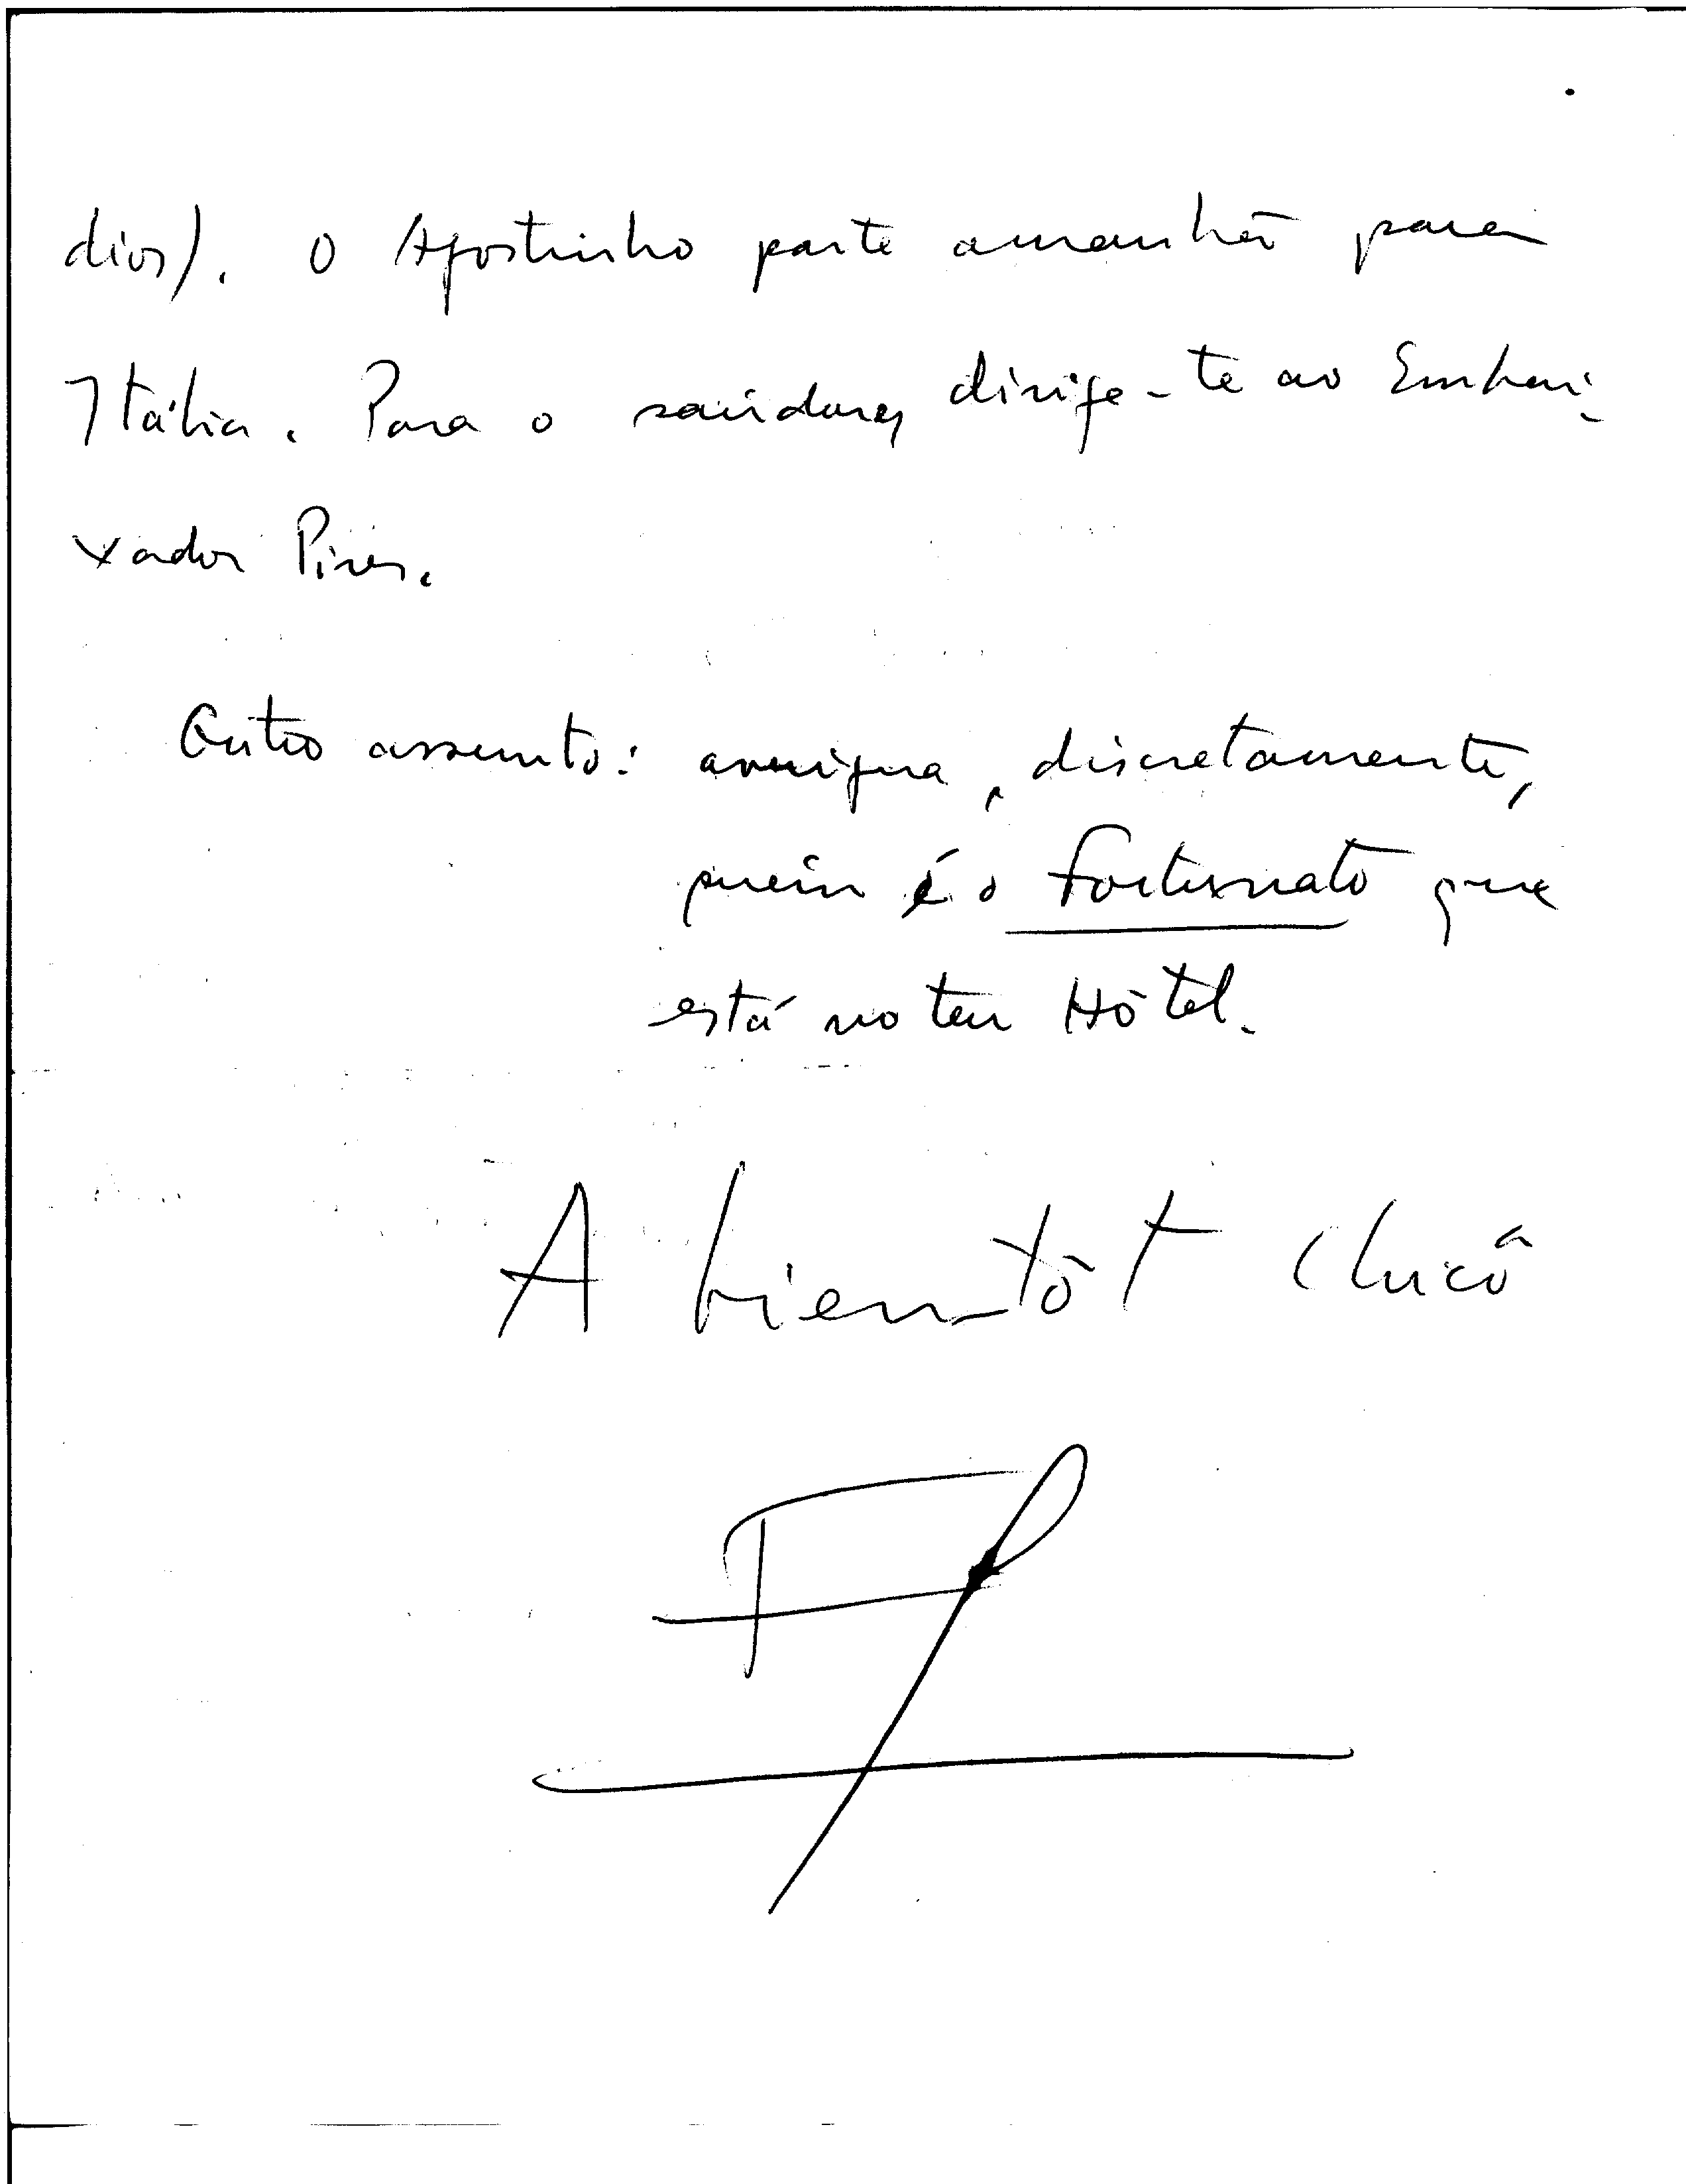 dios). O Agostinho parte amanhã para
Itália. Para o saudares, dirige-te ao Embai-
xador Pires.
Outro assunto: averigua, discretamente,
quem é o Fortunato que
está no teu Hôtel.
A bientôt Chicô